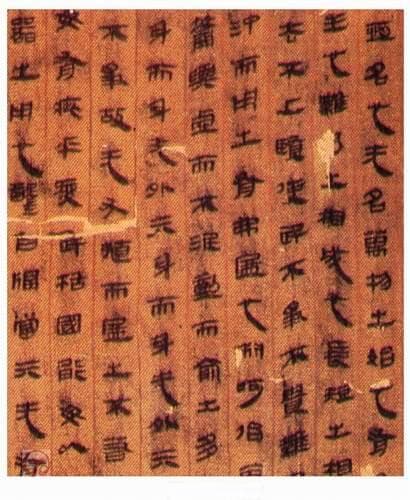 恒名也无名萬物之始也有
生也難易之相成也長短之相
去不上賢使民不爭不貴難
沖而用之有弗盈也淵呵佁
籥輿虛而不淈動而俞出多
身而身先外亓身而身先外亓
不爭故无尤揰而盈之不若
毋有疵乎愛民栝國能毋以
器之用也鑿戶牖當亓无有